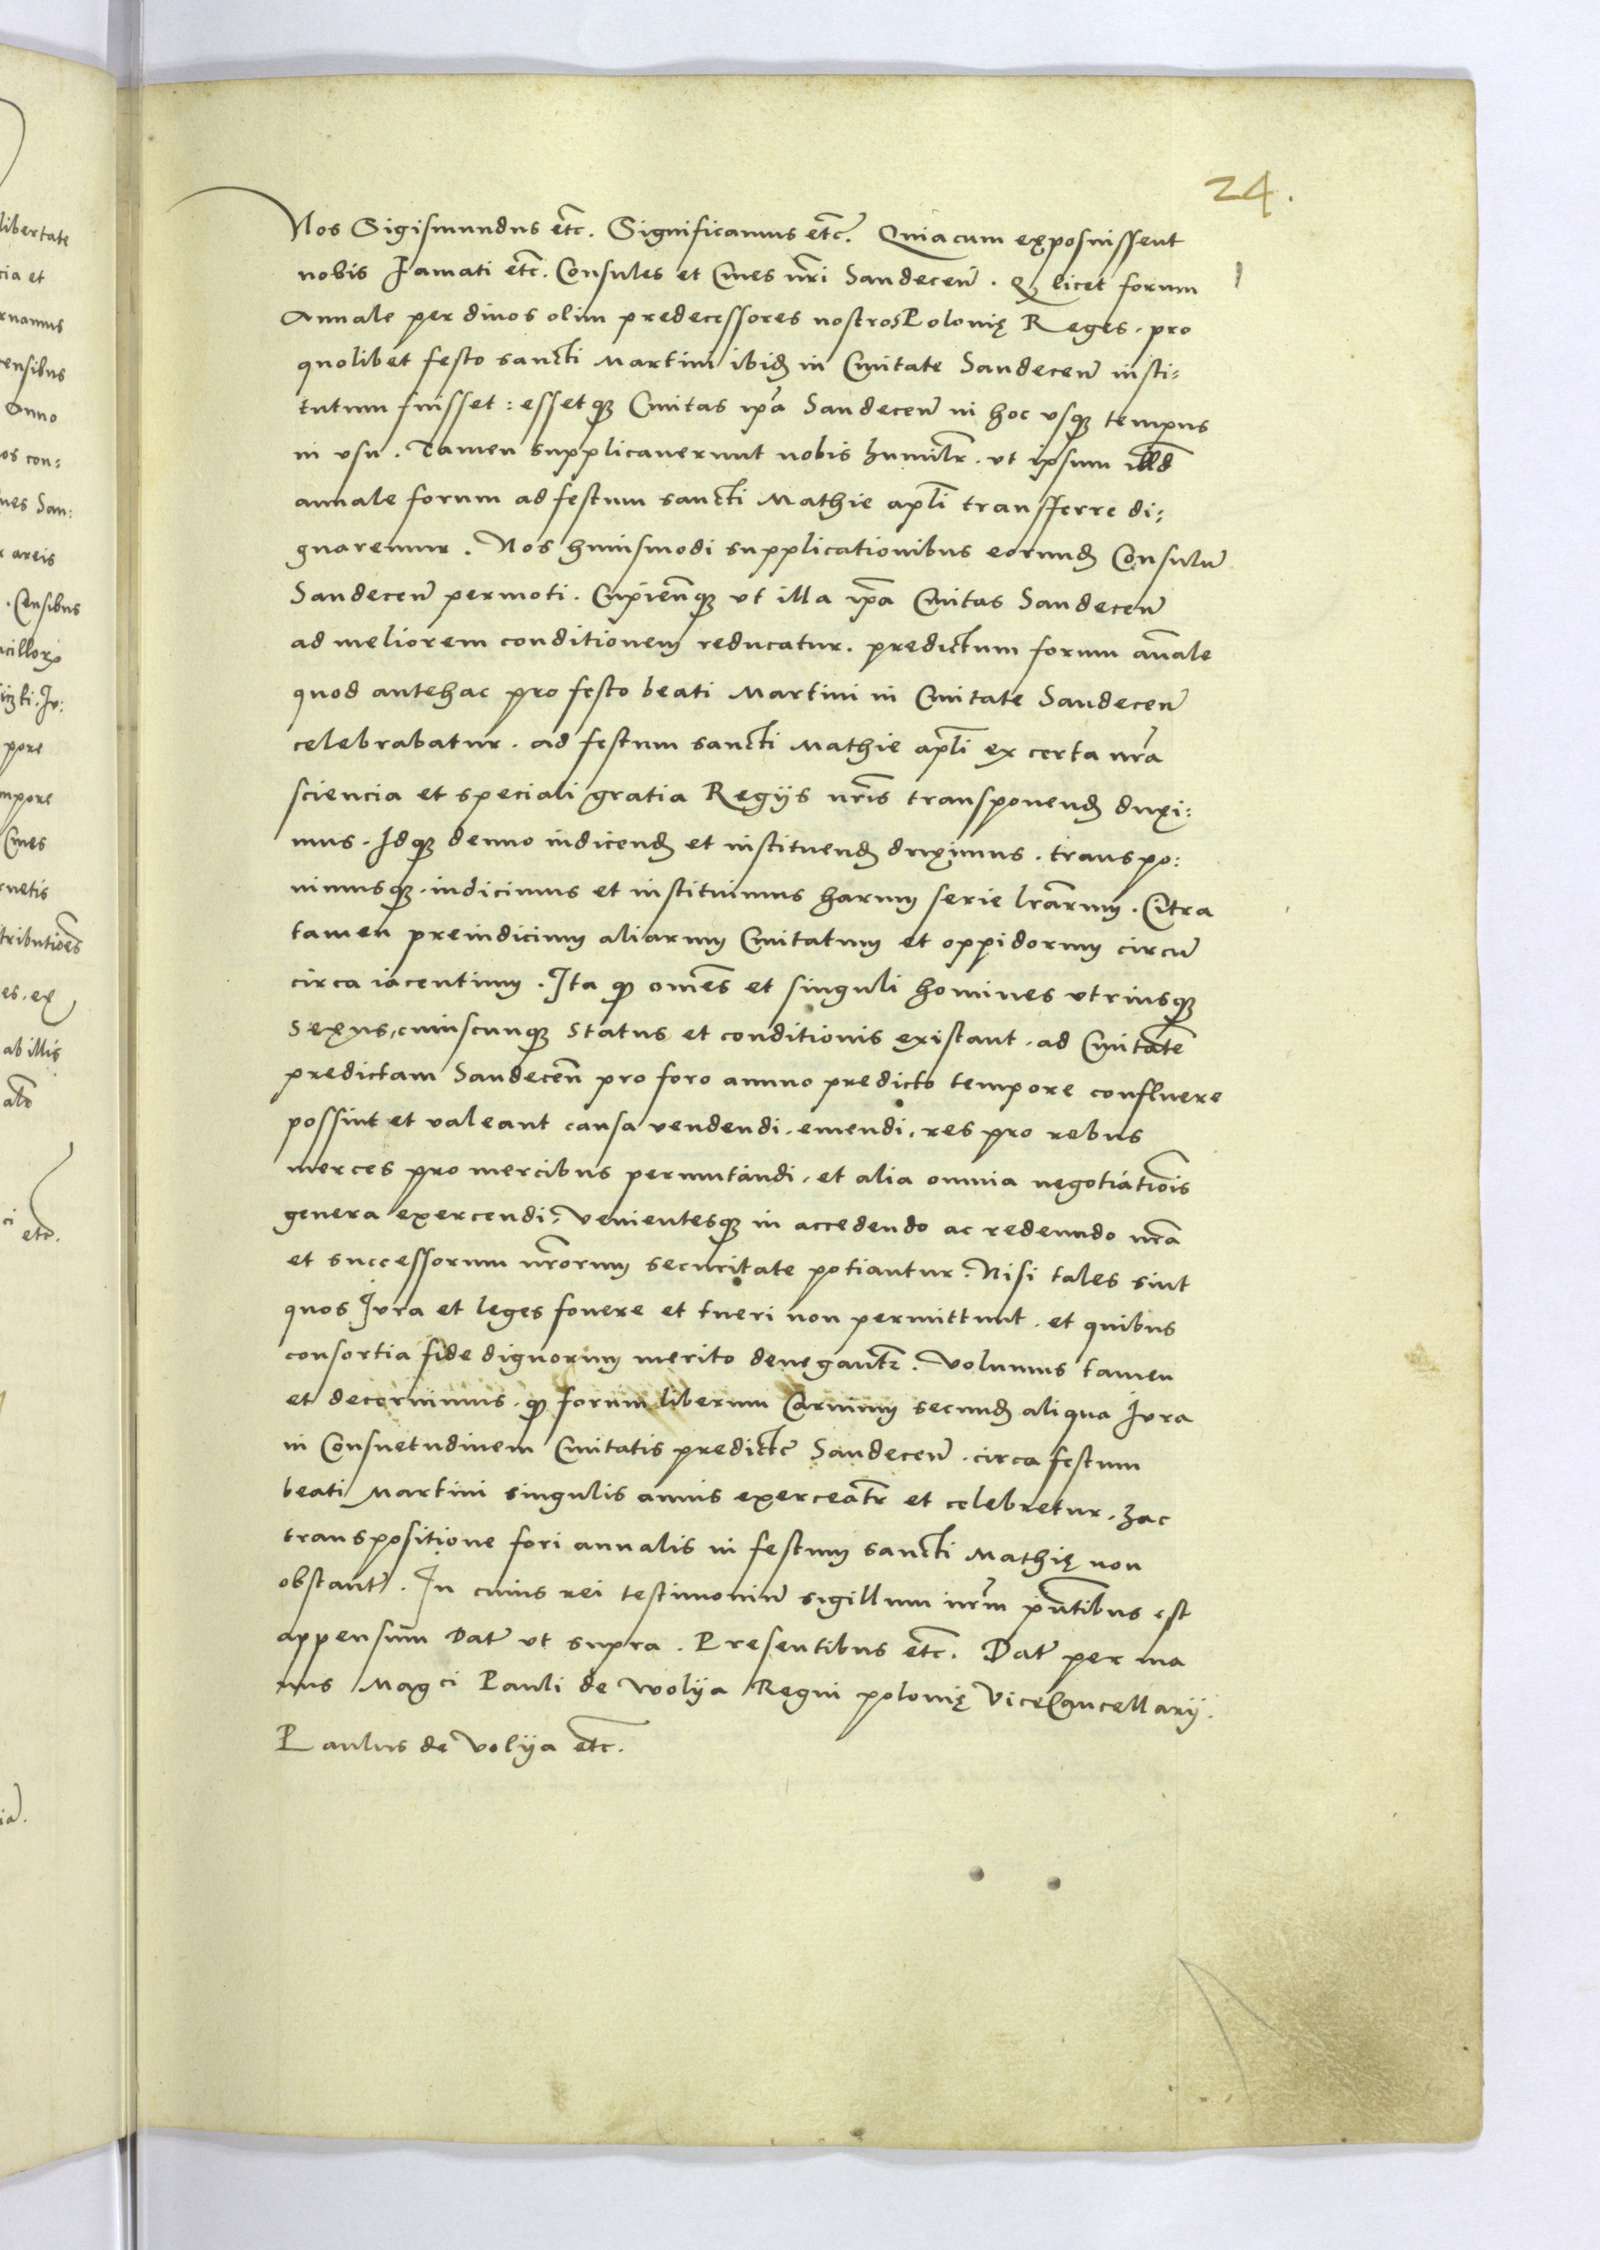 24.
Nos Sigismundus etc. Significamus etc. Quia cum exposuissent
nobis Famati etc. Consules et Cives nri Sandecen . Q licet forum
Annale per divos olim predecessores nostros Polonię Reges . pro
quolibet festo sancti Martini ibid in Civitate Sandecen insti:
tutum fuisset : essetq Civitas ipa Sandecen in hoc usq tempus
in usu . Tamen supplicaverunt nobis humilr . ut ipsum illud
annale forum ad festum sancti Mathie apli transferre di:
gnaremur . Nos huiusmodi supplicationibus eorund Consulu
Sandecen permoti . Cupienq ut illa ipa Civitas Sandecen
ad meliorem conditionem reducatur . predictum forum anale
quod antehac pro festo beati Martini in Civitate Sandecen
celebrabatur . ad festum sancti Mathie apli ex certa nra
sciencia et speciali gratia Regijs nris transponend duxi:
mus . Idq denuo indicend et instituend duximus . transpo:
nimusq . indicimus et instituimus harum serie lrarum . Citra
tamen preiudicium aliarum Civitatum et oppidorum circu
circa iacentium . Ita q omes et singuli homines utriusq
Sexus, cuiuscunq status et conditionis existant . ad Civitate
predictam Sandecen pro foro annuo predicto tempore confluere
possint et valeant causa vendendi . emendi . res pro rebus
merces pro mercibus permutandi . et alia omnia negotiatiois
genera exercendi : Venientesq in accedendo ac redeundo nra
et successorum nrorum securitate potiantur . Nisi tales sint
quos Jura et leges fovere et tueri non permittunt . et quibus
consortia fide dignorum merito denegantr . Volumus tamen
et decernimus . q forum liberum Carnium secund aliqua Jura
in Consuetudinem Civitatis predicte Sandecen . circa festum
beati Martini singulis annis exerceatr et celebretur . hac
transpositione fori annalis in festum sancti Mathię non
obstante . In cuius rei testimoniu sigillum nrm pntibus est
appensum Dat ut supra . Presentibus etc. Dat per ma
nus Magci Pauli de Wolya Regni polonię ViceCancellarij .
Paulus de Volya etc.